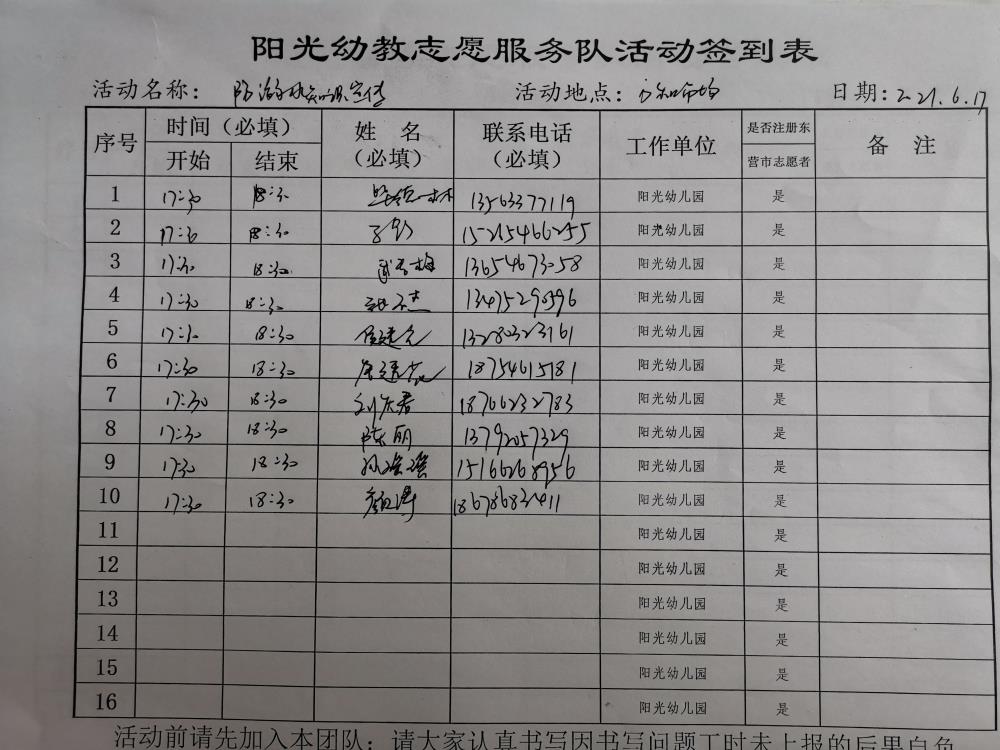 阳光幼教志愿服务队活动签到表
活动名称： 防溺水知识宣传 活动地点： 日期：2021.6.17
序号 时间（必填） 姓 名（必填） 联系电话（必填） 工作单位 是否注册东营市志愿者 备 注
开始 结束
1 17:30 18:30 13563377119 阳光幼儿园 是
2 17:30 18:30 15215466255 阳光幼儿园 是
3 17:30 18:30 13654673058 阳光幼儿园 是
4 17:30 18:30 13475290396 阳光幼儿园 是
5 17:30 18:30 13280323161 阳光幼儿园 是
6 17:30 18:30 18754615181 阳光幼儿园 是
7 17:30 18:30 18766232783 阳光幼儿园 是
8 17:30 18:30 陈丽 13792057329 阳光幼儿园 是
9 17:30 18:30 15166268956 阳光幼儿园 是
10 17:30 18:30 18678683411 阳光幼儿园 是
11 阳光幼儿园 是
12 阳光幼儿园 是
13 阳光幼儿园 是
14 阳光幼儿园 是
15 阳光幼儿园 是
16 阳光幼儿园 是
活动前请先加入本团队；请大家认真书写因书写问题工时未上报的后果自负